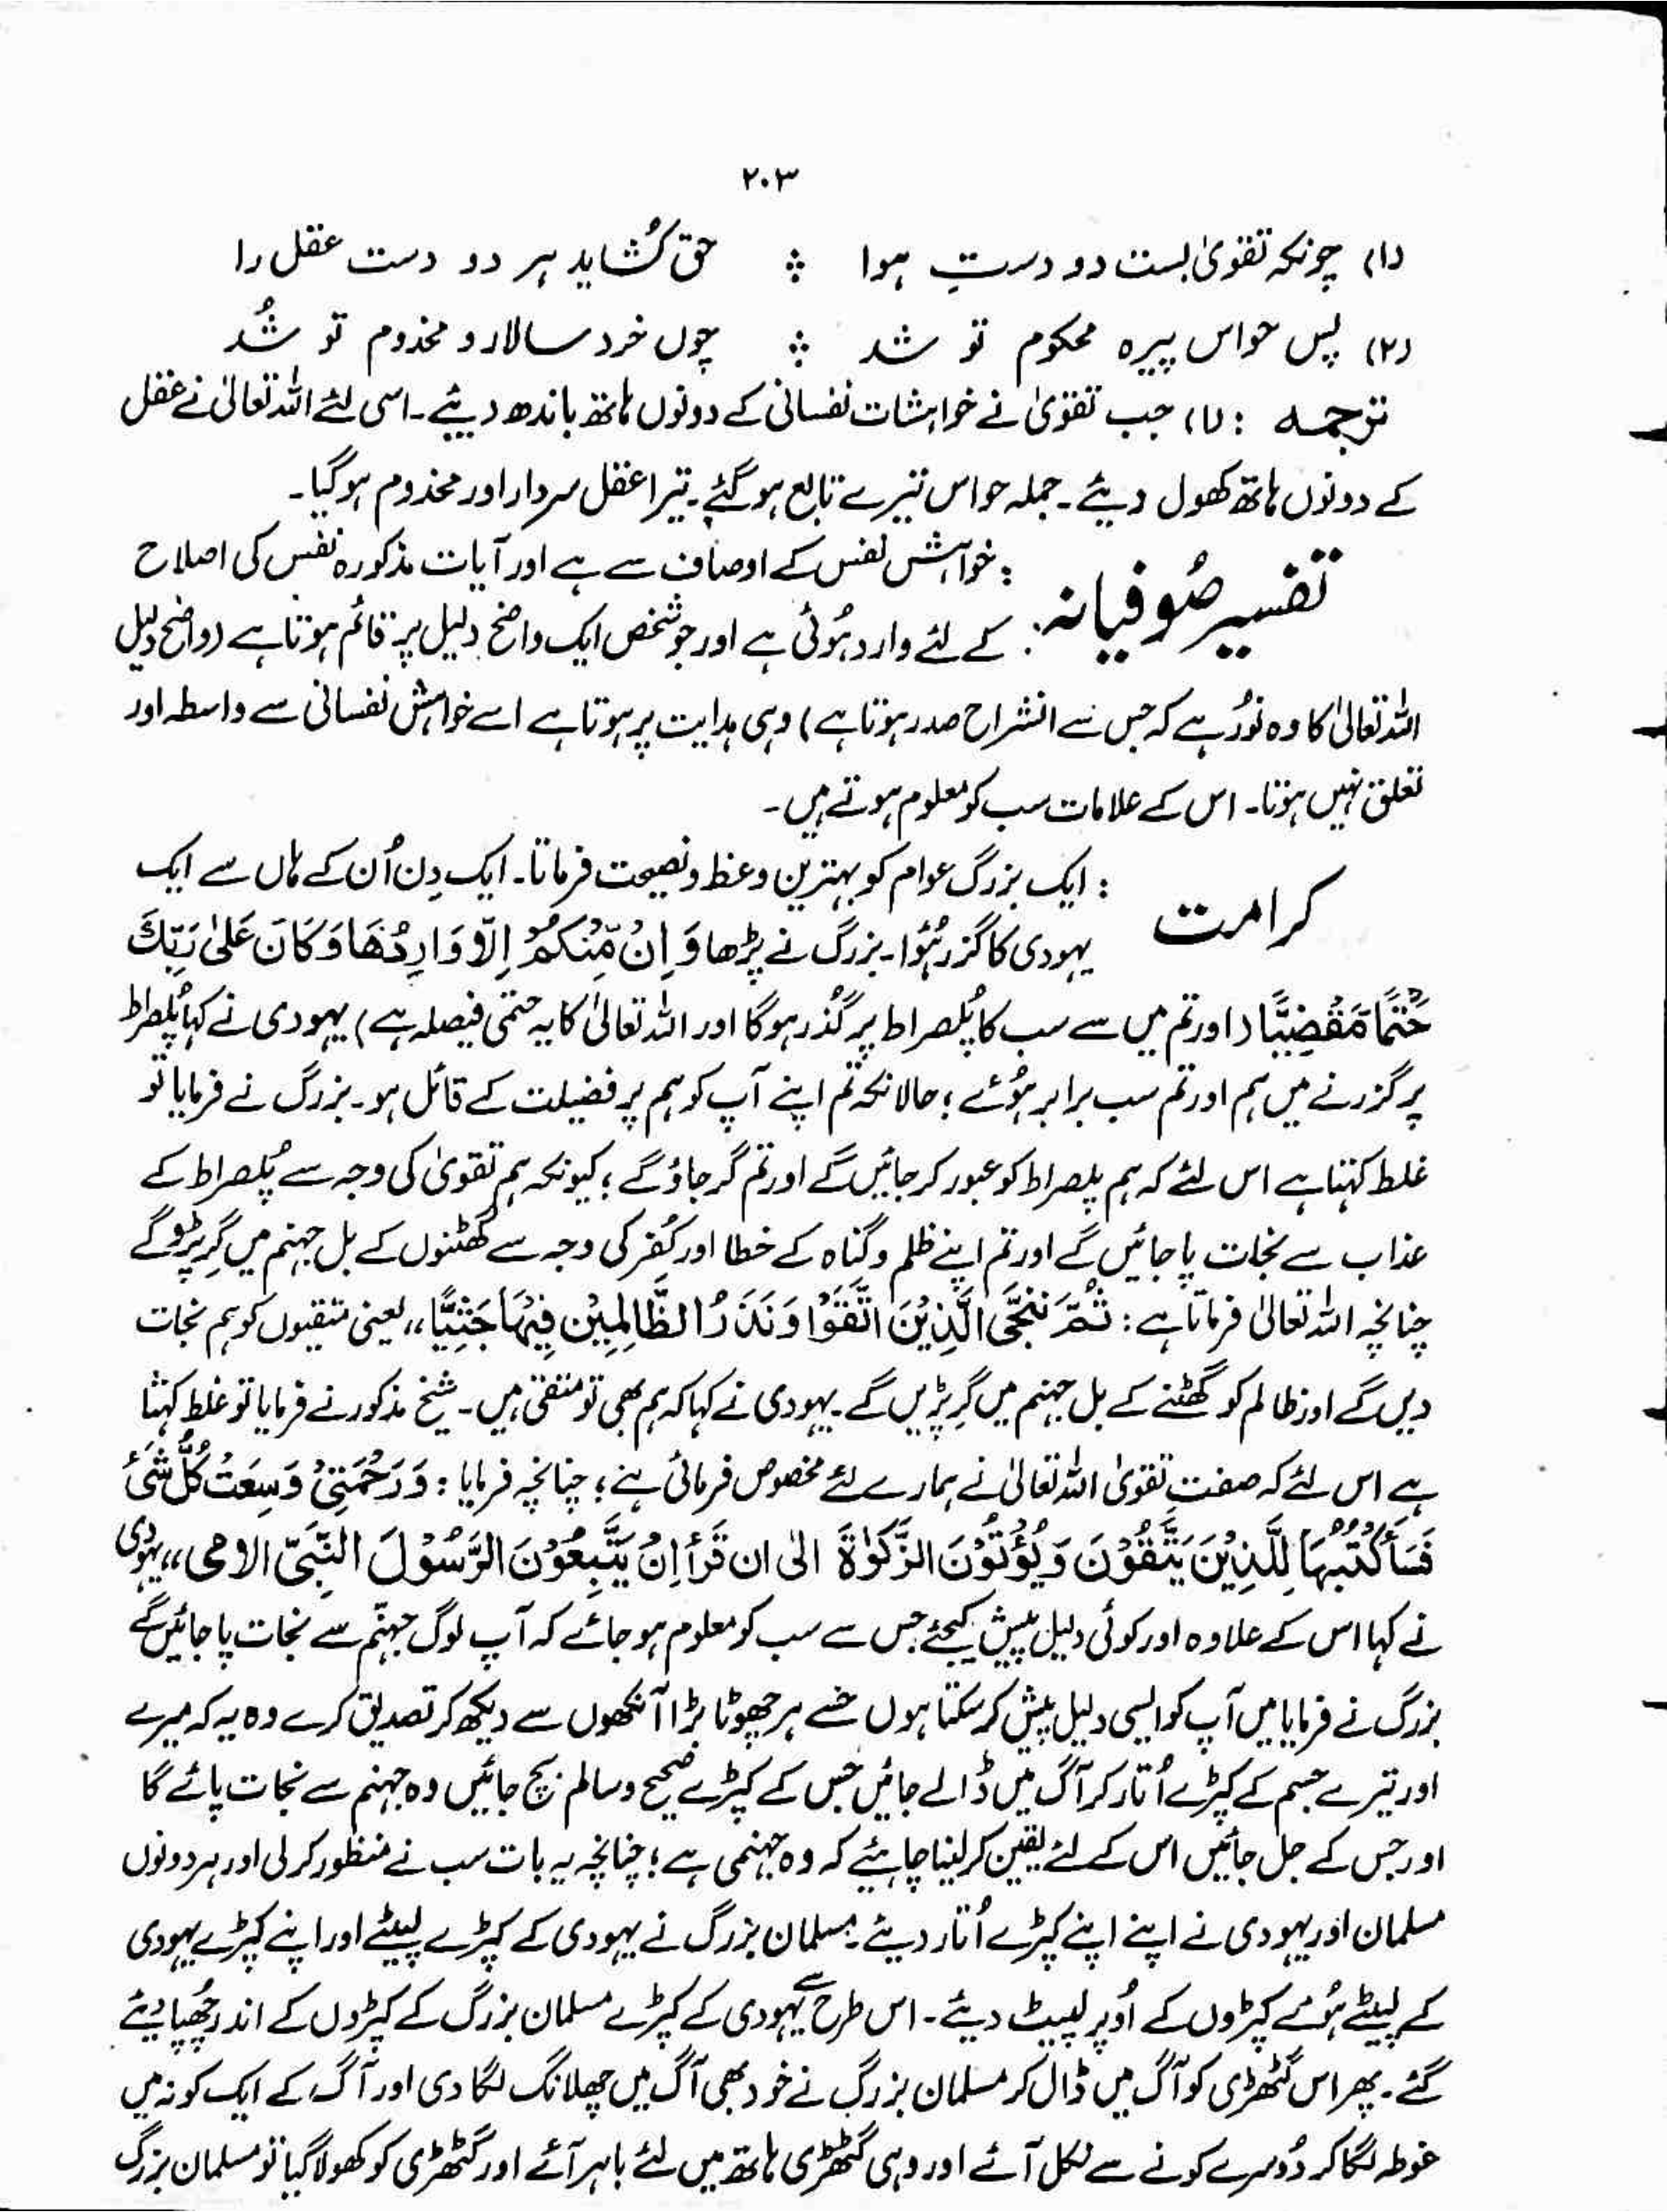 ۲۰۳
(۱) چونکہ تقویٰ بست دو دستِ ہوا ؞ حق کُشاید ہر دو دست عقل را
(۲) پس حواس پیرہ محکوم تو شد ؞ چوں خرد سالار و مخدوم تو شُد
ترجمہ : (۱) جب تقویٰ نے خواہشات نفسانی کے دونوں ہاتھ باندھ دیئے۔ اسی لئے اللہ تعالیٰ نے عقل
کے دونوں ہاتھ کھول دیئے۔ جملہ حواس تیرے تابع ہو گئے۔ تیرا عقل سردار اور مخدوم ہو گیا۔
تفسیر صُوفیانہ : خواہش نفس کے اوصاف سے ہے اور آیات مذکورہ نفس کی اصلاح
کے لئے وارد ہُوئی ہے اور جو شخص ایک واضح دلیل پر قائم ہوتا ہے (واضح دلیل
اللہ تعالیٰ کا وہ نُور ہے کہ جس سے انشراح صدر ہوتا ہے) وہی ہدایت پر ہوتا ہے اسے خواہش نفسانی سے واسطہ اور
تعلق نہیں ہوتا۔ اس کے علامات سب کو معلوم ہوتے ہیں۔
کرامت : ایک بزرگ عوام کو بہترین وعظ و نصیحت فرماتا۔ ایک دِن اُن کے ہاں سے ایک
یہودی کا گزر ہُوا۔ بزرگ نے پڑھا وَ اِنْ مِّنْکُمْ اِلَّا وَارِدُھَا وَ کَانَ عَلیٰ رَبِّكَ
حَتْمًا مَّقْضِیًّا (اور تم میں سے سب کا پُلصراط پر گذر ہو گا اور اللہ تعالیٰ کا یہ حتمی فیصلہ ہے) یہودی نے کہا پُلصراط
پر گزرنے میں ہم اور تم سب برابر ہُوئے ؛ حالانکہ تم اپنے آپ کو ہم پر فضیلت کے قائل ہو۔ بزرگ نے فرمایا تو
غلط کہتا ہے اس لئے کہ ہم پلصراط کو عبور کر جائیں گے اور تم گر جاؤ گے ؛ کیونکہ ہم تقویٰ کی وجہ سے پُلصراط کے
عذاب سے نجات پا جائیں گے اور تم اپنے ظلم و گناہ کے خطا اور کُفر کی وجہ سے گھٹنوں کے بل جہنم میں گِر پڑو گے
چنانچہ اللہ تعالیٰ فرماتا ہے : ثُمَّ نُنَجِّی الَّذِیْنَ اتَّقَوْا وَ نَذَرُ الظَّالِمِیْنَ فِیْہَا جِثِیًّا ،، یعنی متقیوں کو ہم نجات
دیں گے اور ظالم کو گھٹنے کے بل جہنم میں گِر پڑیں گے۔ یہودی نے کہا کہ ہم بھی تو متقی ہیں۔ شیخ مذکور نے فرمایا تو غلط کہتا
ہے اس لئے کہ صفتِ تقویٰ اللہ تعالیٰ نے ہمارے لئے مخصوص فرمائی ہے ؛ چنانچہ فرمایا : وَ رَحْمَتِیْ وَسِعَتْ کُلَّ شَیْءٍ
فَسَاَکْتُبُہَا لِلَّذِیْنَ یَتَّقُوْنَ وَ یُؤْتُوْنَ الزَّکٰوۃَ الی ان قَرَأَ اِنْ یَتَّبِعُوْنَ الرَّسُوْلَ النَّبِیَّ الامی ،، یہودی
نے کہا اس کے علاوہ اور کوئی دلیل پیش کیجئے جس سے سب کو معلوم ہو جائے کہ آپ لوگ جہنّم سے نجات پا جائیں گے
بزرگ نے فرمایا میں آپ کو ایسی دلیل پیش کر سکتا ہوں جسے ہر چھوٹا بڑا آنکھوں سے دیکھ کر تصدیق کرے وہ یہ کہ میرے
اور تیرے جسم کے کپڑے اُتار کر آگ میں ڈالے جائیں جس کے کپڑے صحیح و سالم بچ جائیں وہ جہنم سے نجات پائے گا
اور جس کے جل جائیں اس کے لئے یقین کر لینا چاہیئے کہ وہ جہنمی ہے ؛ چنانچہ یہ بات سب نے منظور کر لی اور ہر دونوں
مسلمان اور یہودی نے اپنے اپنے کپڑے اُتار دیئے۔ مسلمان بزرگ نے یہودی کے کپڑے لپیٹے اور اپنے کپڑے یہودی
کے لپیٹے ہُوئے کپڑوں کے اُوپر لپیٹ دیئے۔ اس طرح سے یہودی کے کپڑے مسلمان بزرگ کے کپڑوں کے اندر چُھپا دیئے
گئے۔ پھر اس گٹھڑی کو آگ میں ڈال کر مسلمان بزرگ نے خود بھی آگ میں چھلانگ لگا دی اور آگ کے ایک کونہ میں
غوطہ لگا کر دُوسرے کونے سے نکل آئے اور وہی گٹھڑی ہاتھ میں لئے باہر آئے اور گٹھڑی کو کھولا گیا تو مسلمان بزرگ